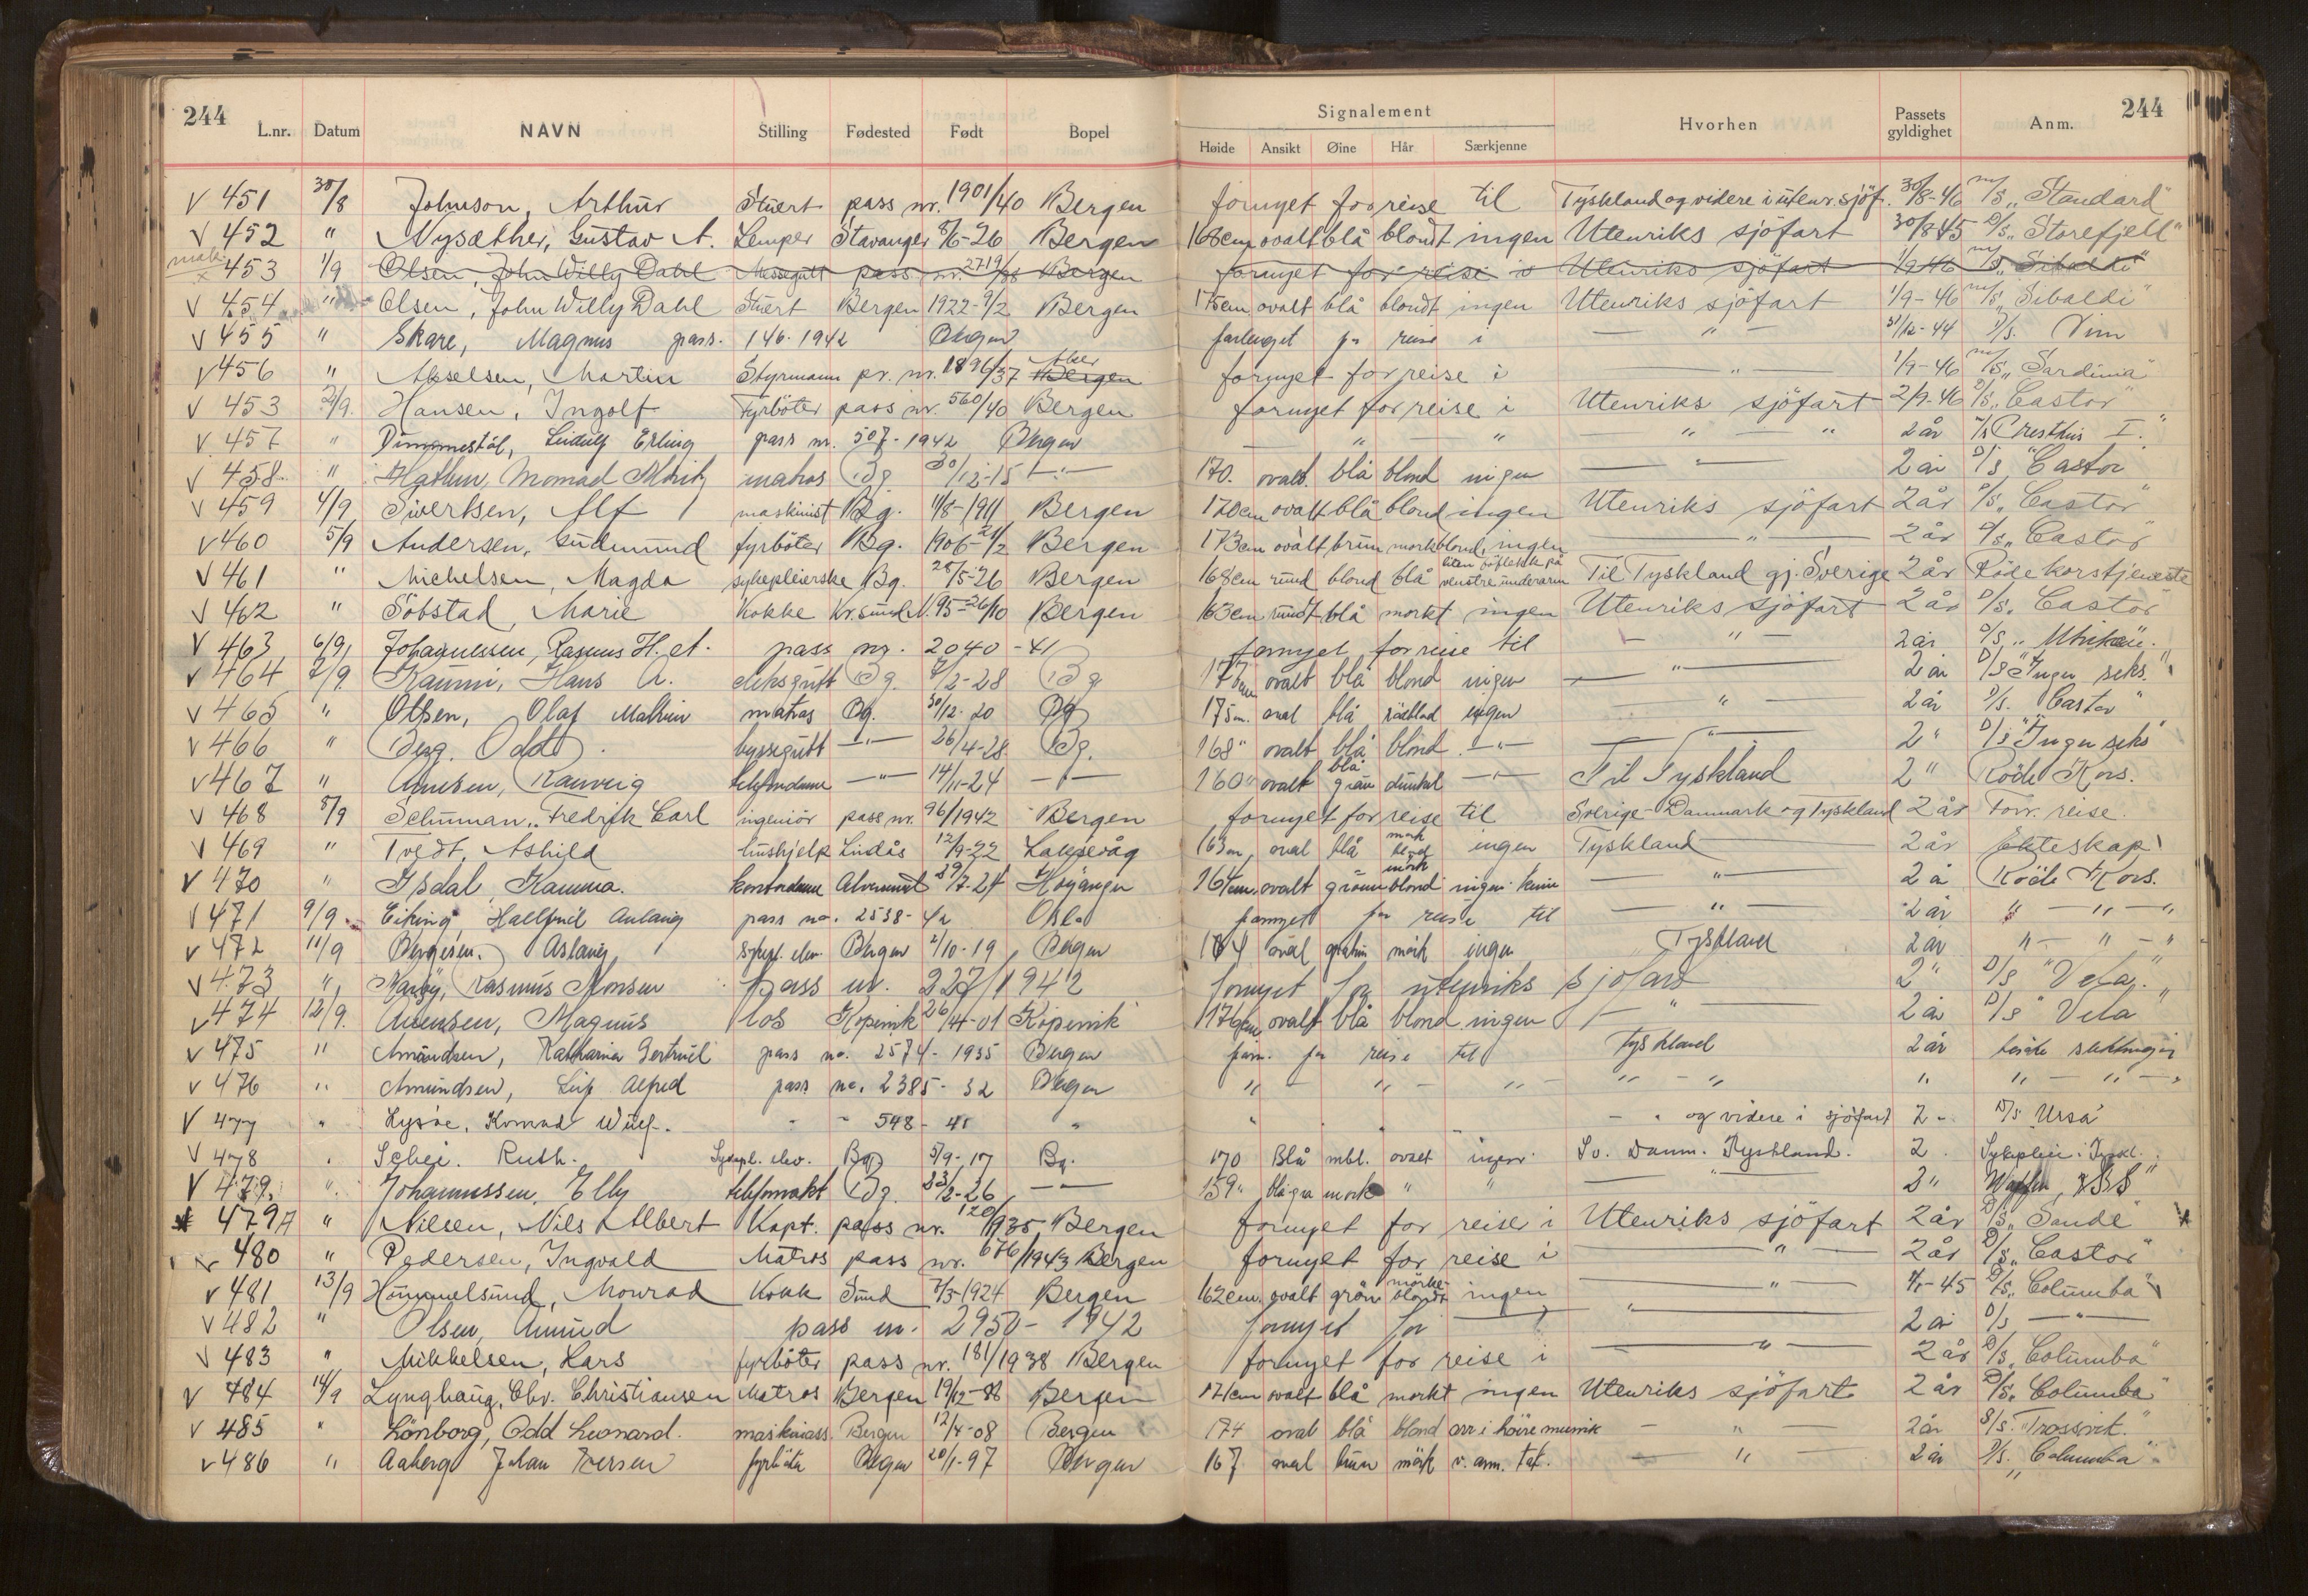 244 Signalement 244
L.nr. Datum NAVN Stilling Fødested Født Bopel Høide Ansikt Øine Hår Særkjenne Hvorhen Passets gyldighet Anm.
V 451 30/8 Johnson, Arthur Stuert pass nr. 1901/40 Bergen fornyet for reise til Tyskland og videre i utenr. sjöf. 30/8-46 m/s „Standard"
V 452 " Nysæther, Gustav A. Lemper Stavanger 8/6-26 Bergen 168cm ovalt blå blondt ingen Utenriks sjöfart 30/8-45 D/s „Storefjell"
mak. x 453 1/9 Olsen, John Willy Dahl Messegutt pass nr. 2719/38 Bergen fornyet for reise i Utenriks sjöfart 1/9-46 m/s „Sibaldi"
V 454 " Olsen, John Willy Dahl Stuert Bergen 1922-9/2 Bergen 175cm ovalt blå blondt ingen Utenriks sjöfart 1/9-46 m/s „Sibaldi"
V 455 " Skare, Magnus pass. 146. 1942 Bergen forlenget for reise i — " — 31/12-44 D/s. Vim
V 456 " Akselsen, Martin Styrmann pr. nr. 1896/37 Bergen fornyet for reise i " 1/9-46 m/s „Sardinia"
V 453 2/9. Hansen, Ingolf Fyrböter pass nr. 560/40 Bergen fornyet for reise i Utenriks sjöfart 2/9-46 D/s „Castor"
V 457 " Ludulf Erling pass nr. 507-1942 Bergen — " — " " — " 2 år I."
V 458 " Moritz matros Bg 30/12-15 — " — 170. ovalt. blå blond ingen — " — 2 år D/s „Castor"
V 459 4/9 Sivertsen, Alf maskinist Bg. 11/8-1911 Bergen 170cm ovalt blå blond ingen Utenriks sjöfart 2 år D/s „Castor"
V 460 5/9 Andersen, Gudmund fyrböter Bg. 1906-21/2 Bergen 173cm ovalt brun mørkblond, ingen — " — 2 år D/s „Castor"
V 461 " Michelsen, Magda sykepleierske Bg. 28/5-26 Bergen 168cm rund blond blå liten på venstre underarm Til Tyskland gj. Sverige 2 år Röde korstjeneste
V 462 " Söbstad, Marie Kokke Kr.sund N. 95-26/10 Bergen 163cm rundt blå morkt ingen Utenriks sjöfart 2 år D/s „Castor"
V 463 6/9, Johannessen, Rasmus H. A. pass nr. 2040-41 fornyet for reise til — " — 2 år D/s „
V 464 7/9. Hans A. deksgutt Bg. 7/2-28 Bg 177cm ovalt blå blond ingen — " — 2 år D/s "Inger seks."
V 465 " Olsen, Olaf matros Bg. 30/12-20 Bg 175m. oval blå rödblond ingen — " — 2 år D/s. Castor"
V 466 " Berg. Odd. byssegutt — " — 26/4-28 Bg. 168" ovalt blå blond. — " — — " — 2" D/s "Inger seks"
V 467 " Ranveig telefondame — " — 14/11-24 — " — 160" ovalt blå grå dunkel — " — Til Tyskland 2" Röde Kors.
V 468 8/9 Schuman, Fredrik Carl ingeniör pass nr. 96/1942 Bergen fornyet for reise til Sverige-Danmark og Tyskland 2 år Forr. reise.
V 469 " Tvedt, Ashild hushjelp Lindås 12/9-22 Laksevåg 163m, oval blå mørk ingen Tyskland 2 år Ekteskap
V 470 " Isdal, Kamma. kontordame 29/7-24 Höyanger 164cm ovalt grönn mörk blond ingen — " — 2 år Röde Kors.
V 471 9/9. Eiking, Aulaug pass no. 2538-42 Oslo fornyet for reise til — " — 2 år " — " — "
V 472 11/9 Bergesen. Aslaug sykepl. elev. Bergen 2/10-19 Bergen 164 oval mörk ingen Tyskland 2 år " — " — "
V 473 " Rasmus Monsen pass nr. 227/1942 fornyet for utenriks sjöfart 2" D/s "Vela."
V 474 12/9. Magnus los Kopervik 26/4-01 Kopervik 176cm ovalt blå blond ingen — " — 2 år D/s "Vela"
V 475 " Amundsen, Katharina Gertrud pass no. 2574-1935 Bergen forn. for reise til Tyskland 2 år besøke
V 476 " Amundsen, Leif Alfred pass no. 2385-32 Bergen " — " — " — " — " " " — " — "
V 477 " Lysöe, Konrad - - 548-41 " " " - " og videre i sjöfart 2 - D/s Ursa"
V 478 " Schei. Ruth. Sykepl. elev. Bg 5/9-17 Bg. 170 Blå mbl. ovalt ingen Sv. Danm. Tyskland. 2. Sykepleie i Tyskl.
V 479. " Johannessen, Elly Bg. 23/2-26 — " — 159" blågrå mork " " — " — 2" Waffen SS"
479A " Nilsen, Nils Albert Kapt. pass nr. 120/1935 Bergen fornyet for reise i Utenriks sjöfart 2 år D/s „Sande"
V 480 " Pedersen, Ingvald Matros pass nr. 676/1943 Bergen fornyet for reise i — " — 2 år D/s „Castor"
V 481 13/9 Hummelsund, Monrad Kokk Sund 7/3-1924 Bergen 162cm. ovalt grön mörke- blondt ingen — " — -45 D/s „Columba"
V 482 " Olsen, Amund pass nr. 2950-1942 fornyet for — " — 2 år D/s — " —
V 483 " Mikkelsen, Lars fyrböter pass nr. 181/1938 Bergen fornyet for reise i — " — 2 år D/s „Columba"
V 484 14/9 Lynghaug, Chr. Christiansen Matros Bergen 19/12-88 Bergen 171cm ovalt blå morkt ingen Utenriks sjöfart 2 år D/s „Columba"
V 485 " Lönborg, Odd Leonard. maskinass. Bergen 12/4-08 Bergen 174 oval blå blond arr i höire munvik — " — 2 år S/s. "Trossvik."
V 486 " Aaberg Johan Iversen fyrböter Bergen 20/1-97 Bergen 167 oval brun mörk v. arm. tat. — " — 2 år D/s. „Columba"